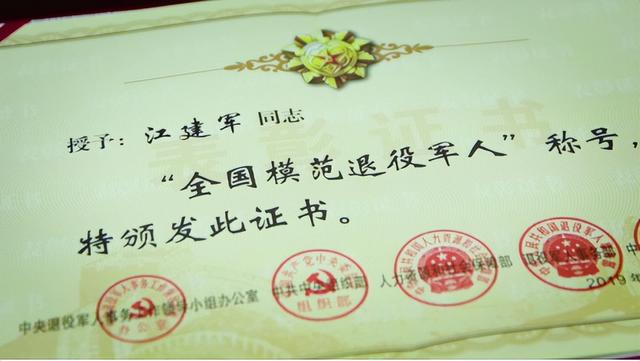 授予：江建军同志
“全国模范退役军人”称号，
特颁发此证书。
中央退役军人事务工作领导小组办公室 中共中央组织部 人力资源和社会保障部 退役军人事务部
2019年
办公室
组织部